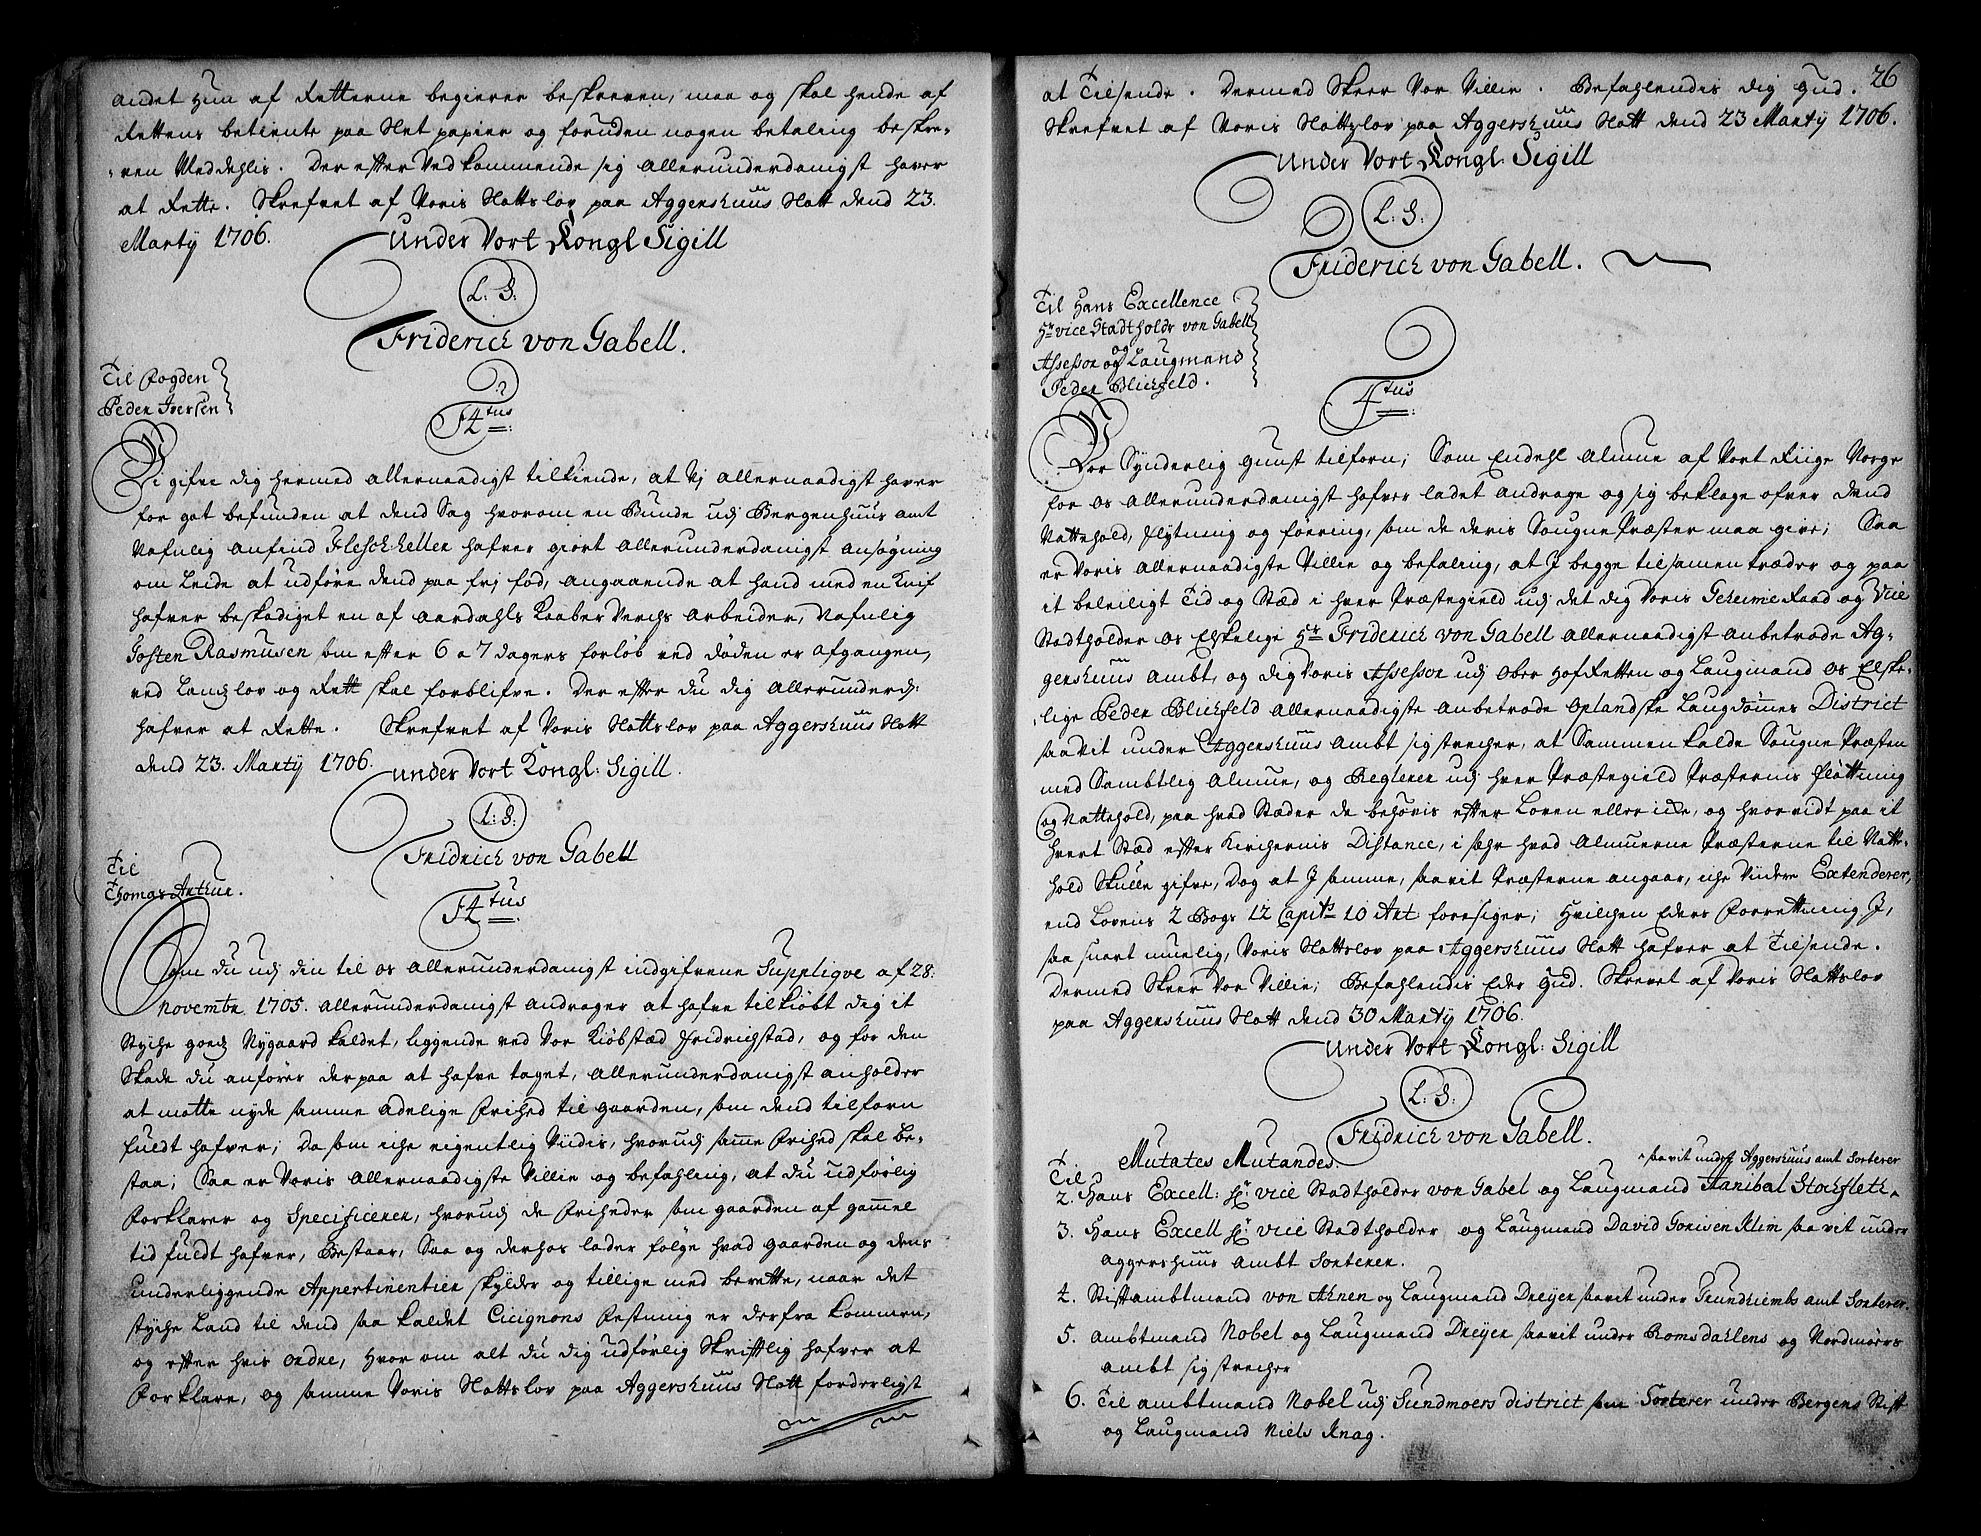 andet Hun af Retterne begierer beskreven, maa og skal hende af
Rettens betiente paa Slet papier og foruden nogen betaling beskre-
ven Meddehlis. Der efter Vedkommende sig allerunderdanigst haver
at Rette. Skrefvet af Voris Slottslov paa Aggershuus Slott dend 23.
Martÿ 1706.
Under Vort Kongl Sigill
L: S:
Friderich von Gabell.
Til Fogden
Peder Iversen
F4tus
Vi gifve dig hermed allernaadigst tilkiende, at Vj allernaadigst haver
for got befunden at dend Sag hvorom en Bunde udj Bergenhuus amt
Nafnlig Anfind Fleschheller hafver giort allerunderdanigst ansøgning
om Leide at udføre dend paa frj fod, angaaende at hand med en Knif
hafver beskadiget en af Aardahls Kaaber Verchs arbeider, Nafnlig
Tosten Rasmusen som efter 6 a 7 dagers forløb ved døden er afgangen,
ved Landslov og Rett skal forblifve. Der efter du dig allerunderd:
hafver at Rette. Skrefvet af Voris Slottslov paa Aggershuus Slott
dend 23. Martÿ 1706.
Under Vort Kongl: Sigill.
L: S:
Fridrich von Gabell
Til
Thomas Arthur.
F4tus
Som du udj din til os allerunderdanigst indgifvene Suppliqve af 28:
Novembr 1705. allerunderdanigst andrager at hafve tilkiøbt dig it
Stÿche goeds Nygaard kaldet, liggende ved Vor Kiøbstæd Fridrichstad, og for den
Skade du anfører derpaa at hafve taget, allerunderdanigst anholder
at motte nyde samme adelige Frihed til gaarden, som dend tilforn
fuldt hafver; Da som iche eigentlig Viidis, hvorudj same Frihed skal be-
staa; Saa er Voris allernaadigste Villie og befahling, at du udførlig
Forklarer og Specificerer, hvorudj de Friheder som gaarden af gammel
tid fuldt hafver, Bestaar, Saa og derhos lader følge hvad gaarden og dens
Underliggende Appertinentier skylder og tillige med berette, naar det
styche Land til dend saa kaldet Cicignons Festning er derfra kommen,
og efter hvis ordre, Hvor om alt du dig udførlig Skrifftlig hafver at
Forklare, og samme Voris Slottslov paa Aggershuus Slott forderligst
76
at Tilsende. Dermed Skeer Vor Villie. Befahlendis dig Gud.
Skrefvet af Voris Slottslov paa Aggershuus Slott dend 23 Martÿ 1706.
Under Vort Kongl: Sigill
L: S:
Friderich von Gabell.
Til Hans Excellence
Hr vice Stadtholdr von Gabell
og
Assessor og Laugmand
Peder Blichfeld.
4tus
Vor Synderlig gunst tilforn; Som Endehl Almue af Vort Riige Norge
for os allerunderdanigst hafver ladet andrage og sig beklage ofver dend
Nattehold, flytning og føering, som de deris Sougne Præster maa give; Saa
er Voris allernaadigste Villie og befaling, at I begge tilsamen træder og paa
it beleiligt Tid og Stæd i hver Præstegield udj det dig Voris Geheime Raad og Vice
Stadtholder os Elskelige Hr Friderich von Gabell allernaadigst anbetrode Ag-
gershuus Ambt, og dig Voris Assessor udj Ober Hof Retten og Laugmand os Elske-
lige Peder Blichfeld allernaadigste anbetrode oplandske Laugdømes District
saavit under Aggershuus Ambt sig strecher, at Sammen kalde Sougne Præsten
med Sambtlig almue, og Reglerer udj hver Præstegield Præsternis Fløttning
og Nattehold, paa hvad Stæder de behøvis efter Loven eller icke, og hvor vidt paa it
hvert Stæd efter Kirchernis Distance, i sær hvad almuerne Præsterne til Natte-
hold Skulle gifve, dog at I samme, saavit Præsterne angaar, iche Videre Extenderer,
end Lovens 2 Bogs 12 Capits 10 Art foresiger; Hvilchen Eders Forrettning I,
saa snart muelig, Voris Slottslov paa Aggershuus Slott hafver at Tilsende.
Dermed Skeer Vor Villie; Befahlendis Eder Gud. Skrevet af Voris Slottslov
paa Aggershuus Slott dend 30 Martÿ 1706.
Under Vort Kongl: Sigill
L: S:
Fridrich von Gabell.
Mutates Mutandes.
Til
^ saavit under Aggershuus amt Sorterer
2. Hans Excell: Hr vice Stadtholder von Gabel og Laugmand Hanibal Stochfleth ^
3. Hans Excell Hr vice Stadtholder og Laugmand David Gorisen Klim saa vit under
Aggershuus Ambt Sorterer.
4. Stiftambtmand von Ahnen og Laugmand Dreÿer saavit under Trundhiembs amt Sorterer.
5. Ambtmand Nobel og Laugmand Dreÿer saavit under Romsdahlens og Nordmørs
Ambt sig strecher
6. Til ambtmand Nobel udj Sundmoers district som Sorterer under Bergens Stift
og Laugmand Niels Knag.